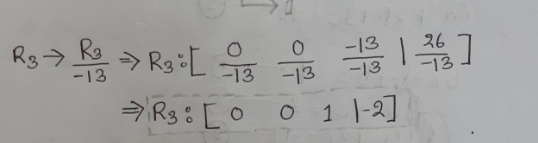 R₃ → R₃/-13 ⇒ R₃: [ 0/-13 0/-13 -13/-13 | 26/-13 ]
⇒ R₃: [ 0 0 1 |-2]